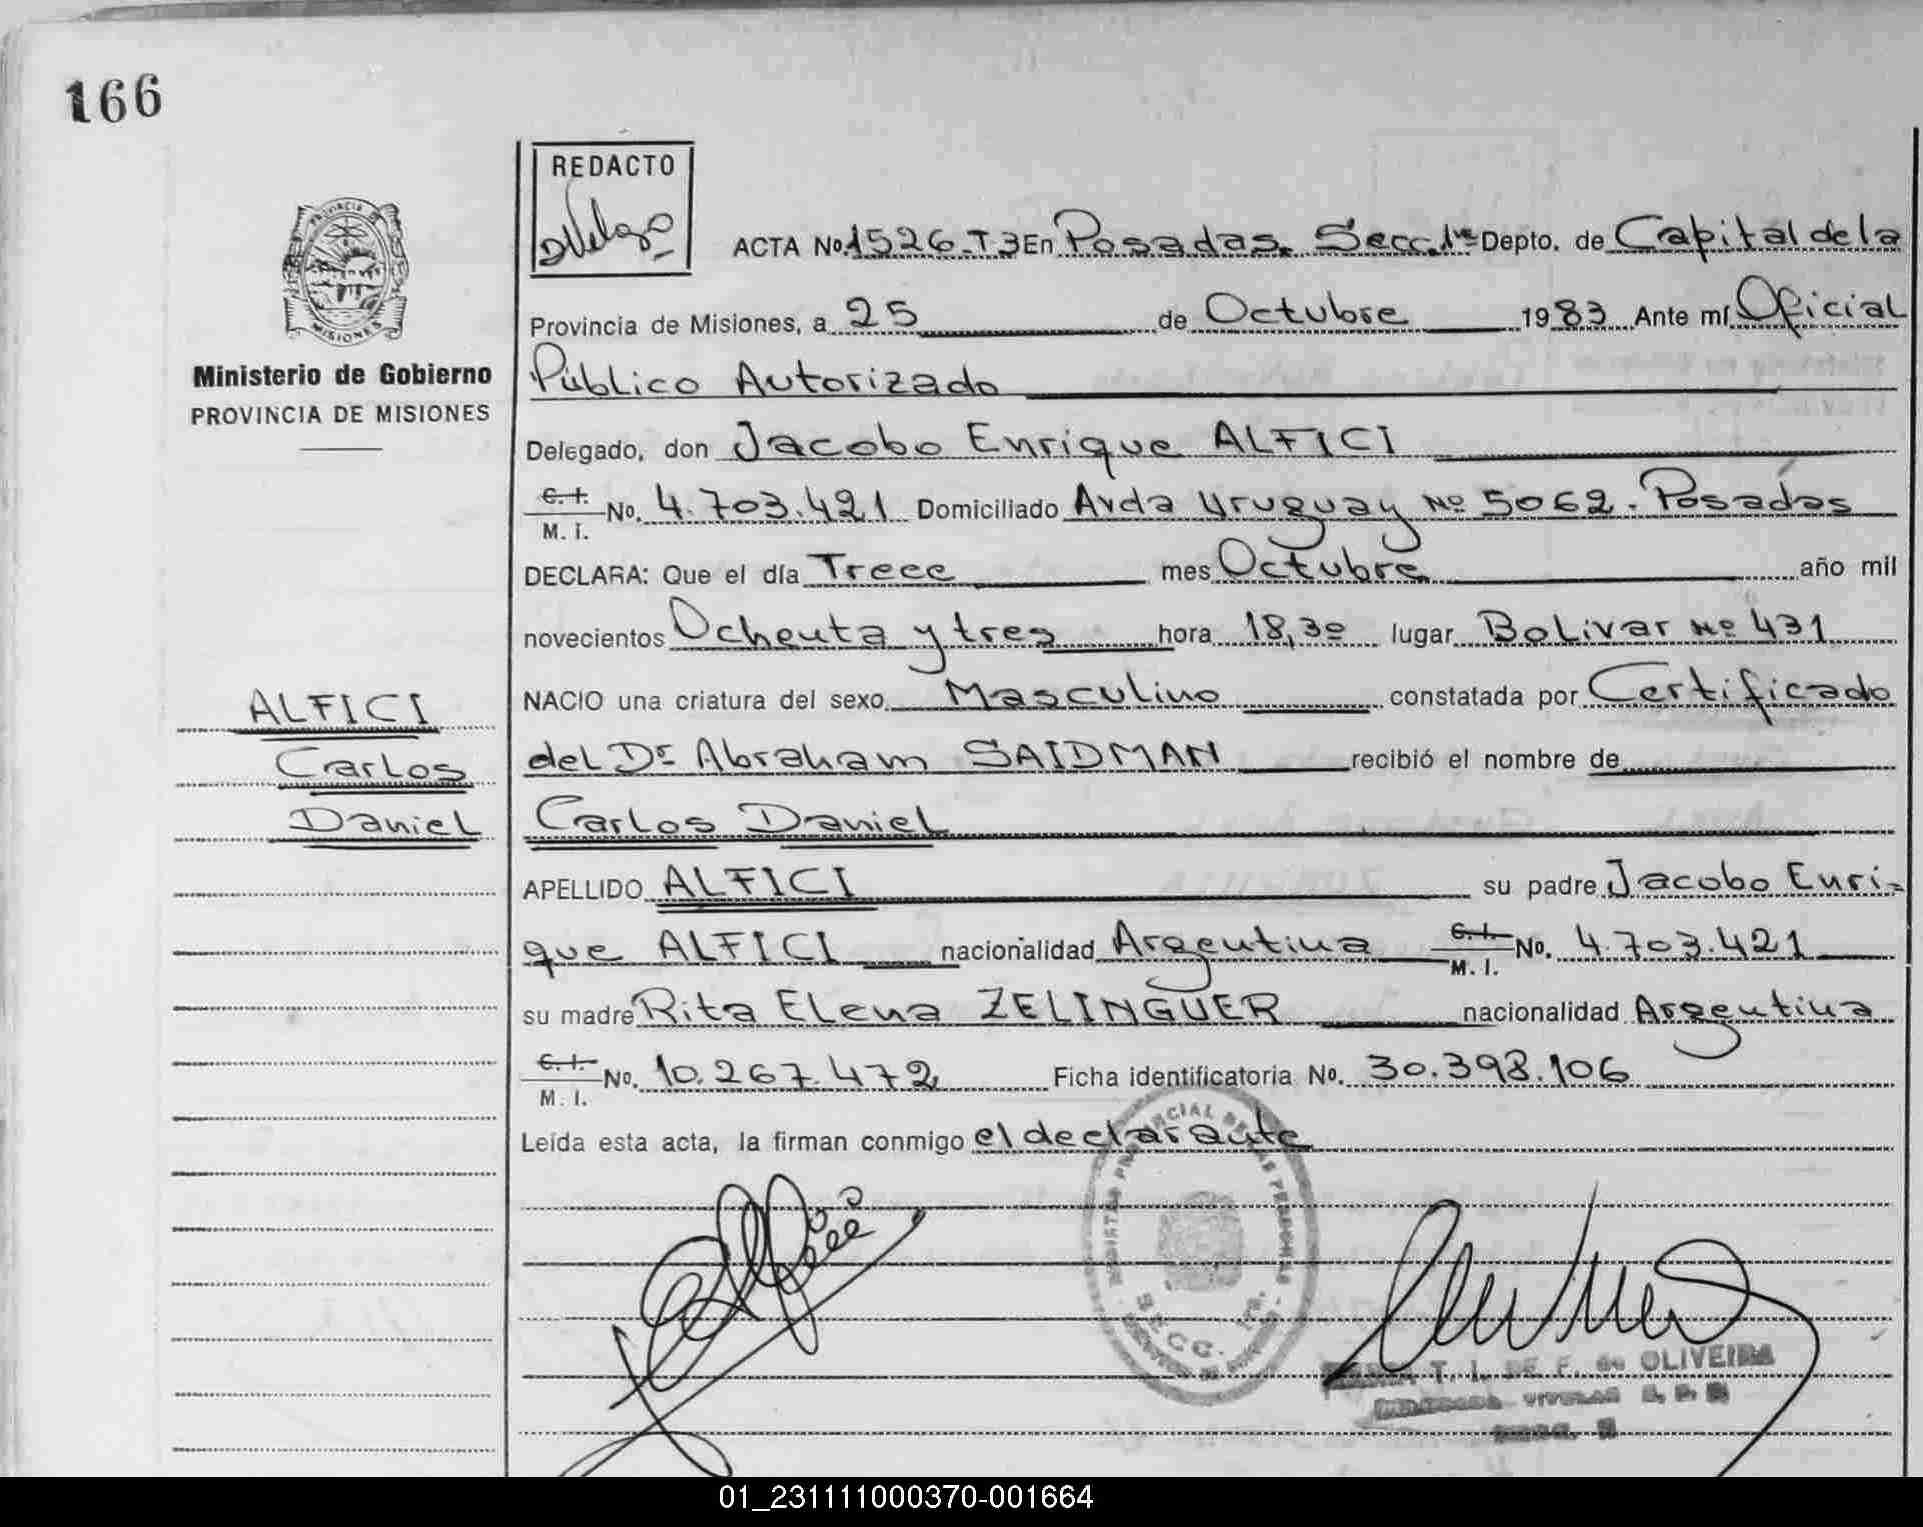 166
REDACTO
PROVINCIA DE
MISIONES
Ministerio de Gobierno
PROVINCIA DE MISIONES
ACTA No. 1526-T3 En Posadas. Secc. 1ra Depto. de Capital de la
Provincia de Misiones, a 25 de Octubre 1983 Ante mí Oficial
Público Autorizado
Delegado, don Jacobo Enrique ALFICI
C.I. M.I. No. 4.703.421 Domiciliado Avda Uruguay Nº 5062. Posadas
DECLARA: Que el día Trece mes Octubre año mil
novecientos Ochenta y tres hora 18,30 lugar Bolivar Nº 431
NACIO una criatura del sexo Masculino constatada por Certificado
del Dr Abraham SAIDMAN recibió el nombre de
Carlos Daniel
APELLIDO ALFICI su padre Jacobo Enri-
que ALFICI nacionalidad Argentina C.I. M.I. No. 4.703.421
su madre Rita Elena ZELINGUER nacionalidad Argentina
C.I. M.I. No. 10.267.472 Ficha identificatoria No. 30.398.106
Leída esta acta, la firman conmigo el declarante
ALFICI
Carlos
Daniel
SECC. 1ra.
T. I. DE F. de OLIVEIRA
01_231111000370-001664